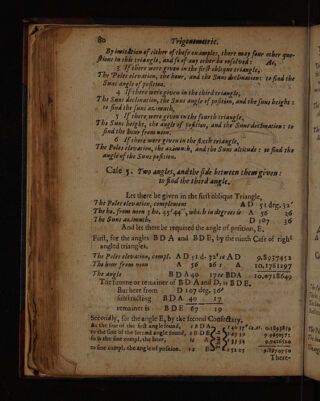 80 Trigonometrie.
By imitation of either of these examples, there may four other que-
stions in this triangle, and so of any other be resolved: As,
3 If there were given in the first oblique triangle,
The Poles elevation, the hour, and the Suns declination: to find the
Suns angle of position.
4 If there were given in the third triangle,
The Suns declination, the Suns angle of position, and the suns height:
to find the suns azimuth,
5 If there were given in the fourth triangle,
The Suns height, the angle of position, and the Suns declination: to
find the hour from noon.
6 If there were given in the sixth triangle,
The Poles elevation, the azimuth, and the Suns altitude: to find the
angle of the Suns position.
Case 5. Two angles, and the side between them given:
to find the third angle.
Let there be given in the first oblique Triangle,
The Poles elevation, complement A D 51 deg. 32'
The ho. from noon 3 ho. 45' 44'', which in degrees is A 56 26
The Suns azimuth, D 107 36
And let there be required the angle of position, E,
First, for the angles B D A and B D E, by the ninth Case of right
angled triangles.
The Poles elevation, compl. A D 51 d. 32' is A D 9.8937452
The hour from noon A 56 26 10.1781197
The angle B D A 40 17 10.0718649
The summe or remainer of B D A and D, is B D E.
But here from D 107 deg. 36'
substracting B D A 40 17
remainer is B D E 67 19
Secondly, for the angle E, by the second Consectary,
As the sine of the first angle found,
to the sine of the second angle found,
so is the sine compl. the hour,
to sine compl. the angle of position.
There-